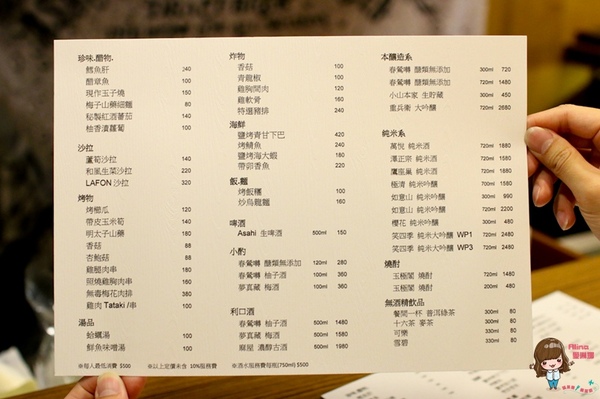 珍味.醋物.
鱈魚肝 240
醋章魚 180
現作玉子燒 150
梅子山藥細麵 80
秘製紅酒蕃茄 140
柚香漬蘿蔔 100
沙拉
蘆筍沙拉 140
和風生菜沙拉 220
LAFON 沙拉 320
烤物
烤櫛瓜 120
帶皮玉米筍 140
明太子山藥 180
香菇 88
杏鮑菇 88
雞腿肉串 180
照燒雞胸肉串 160
無毒梅花肉排 380
雞肉 Tataki /串 180
湯品
蛤蠣湯 150
鮮魚味噌湯 150
炸物
香菇 100
青龍椒 100
雞胸間肉 120
雞軟骨 160
特選豬排 240
海鮮
鹽烤青甘下巴 420
烤鯖魚 240
鹽烤海大蝦 180
帶卵香魚 220
飯.麵
烤飯糰 100
炒烏龍麵 160
啤酒
Asahi 生啤酒 500ml 150
小酌
春鶯囀 釀類無添加 120ml 280
春鶯囀 柚子酒 100ml 360
夢真藏 梅酒 100ml 360
利口酒
春鶯囀 柚子酒 500ml 1480
夢真藏 梅酒 500ml 1580
麻屋 濃醇古酒 500ml 1980
本釀造系
春鶯囀 釀類無添加 300ml 720
春鶯囀 釀類無添加 720ml 1480
小山本家 生貯藏 300ml 450
重兵衛 大吟釀 720ml 2680
純米系
萬悅 純米酒 720ml 1880
澤正宗 純米酒 720ml 1580
鷹座巢 純米酒 720ml 1880
極清 純米吟釀 720ml 1580
如意山 純米吟釀 300ml 990
如意山 純米吟釀 720ml 2200
櫻花 純米吟釀 300ml 480
笑四季 純米大吟釀 WP1 720ml 2480
笑四季 純米大吟釀 WP3 720ml 2480
燒酎
玉極閣 燒酎 720ml 1460
玉極閣 燒酎 200ml 480
無酒精飲品
餐間一杯 普洱綠茶 300ml 80
十六茶 麥茶 300ml 80
可樂 330ml 80
雪碧 330ml 80
※每人最低消費 $500 ※以上定價未含 10%服務費 ※酒水服務費每瓶(750ml) $500
Alina
愛琳娜